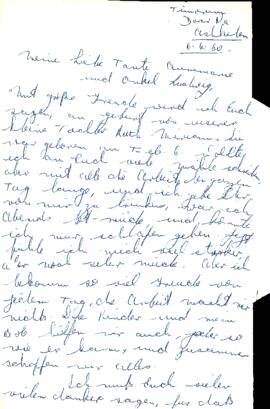 Timorim
Doar Na
Ashkelon
6.4.60.
Meine liebe Tante Annemarie
und Onkel Ludwig,
Mit große Freude werd ich Euch
sagen, an geburt von unserer
kleine Tochter Ruth Miriam. Sie
war geboren am Feb 6
ich an Euch
aber mit all die Arbeit den ganzen
Tag lange, und ich jede Uhr
von mir zu
Abends ist müde und könnte
ich nur schlafen gehen. Jetzt
fühle ich mich viel starker
aber noch sehr müde. Aber ich
bekomm so viel Freude von
jedem Tag, die Arbeit macht mir
nichts. Die Kinder und mein
Bob helfen mir auch, jeder so
wie er kann, und zusammen
schaffen wir alles.
Ich muß Euch vielen
vielen danken sagen, für das